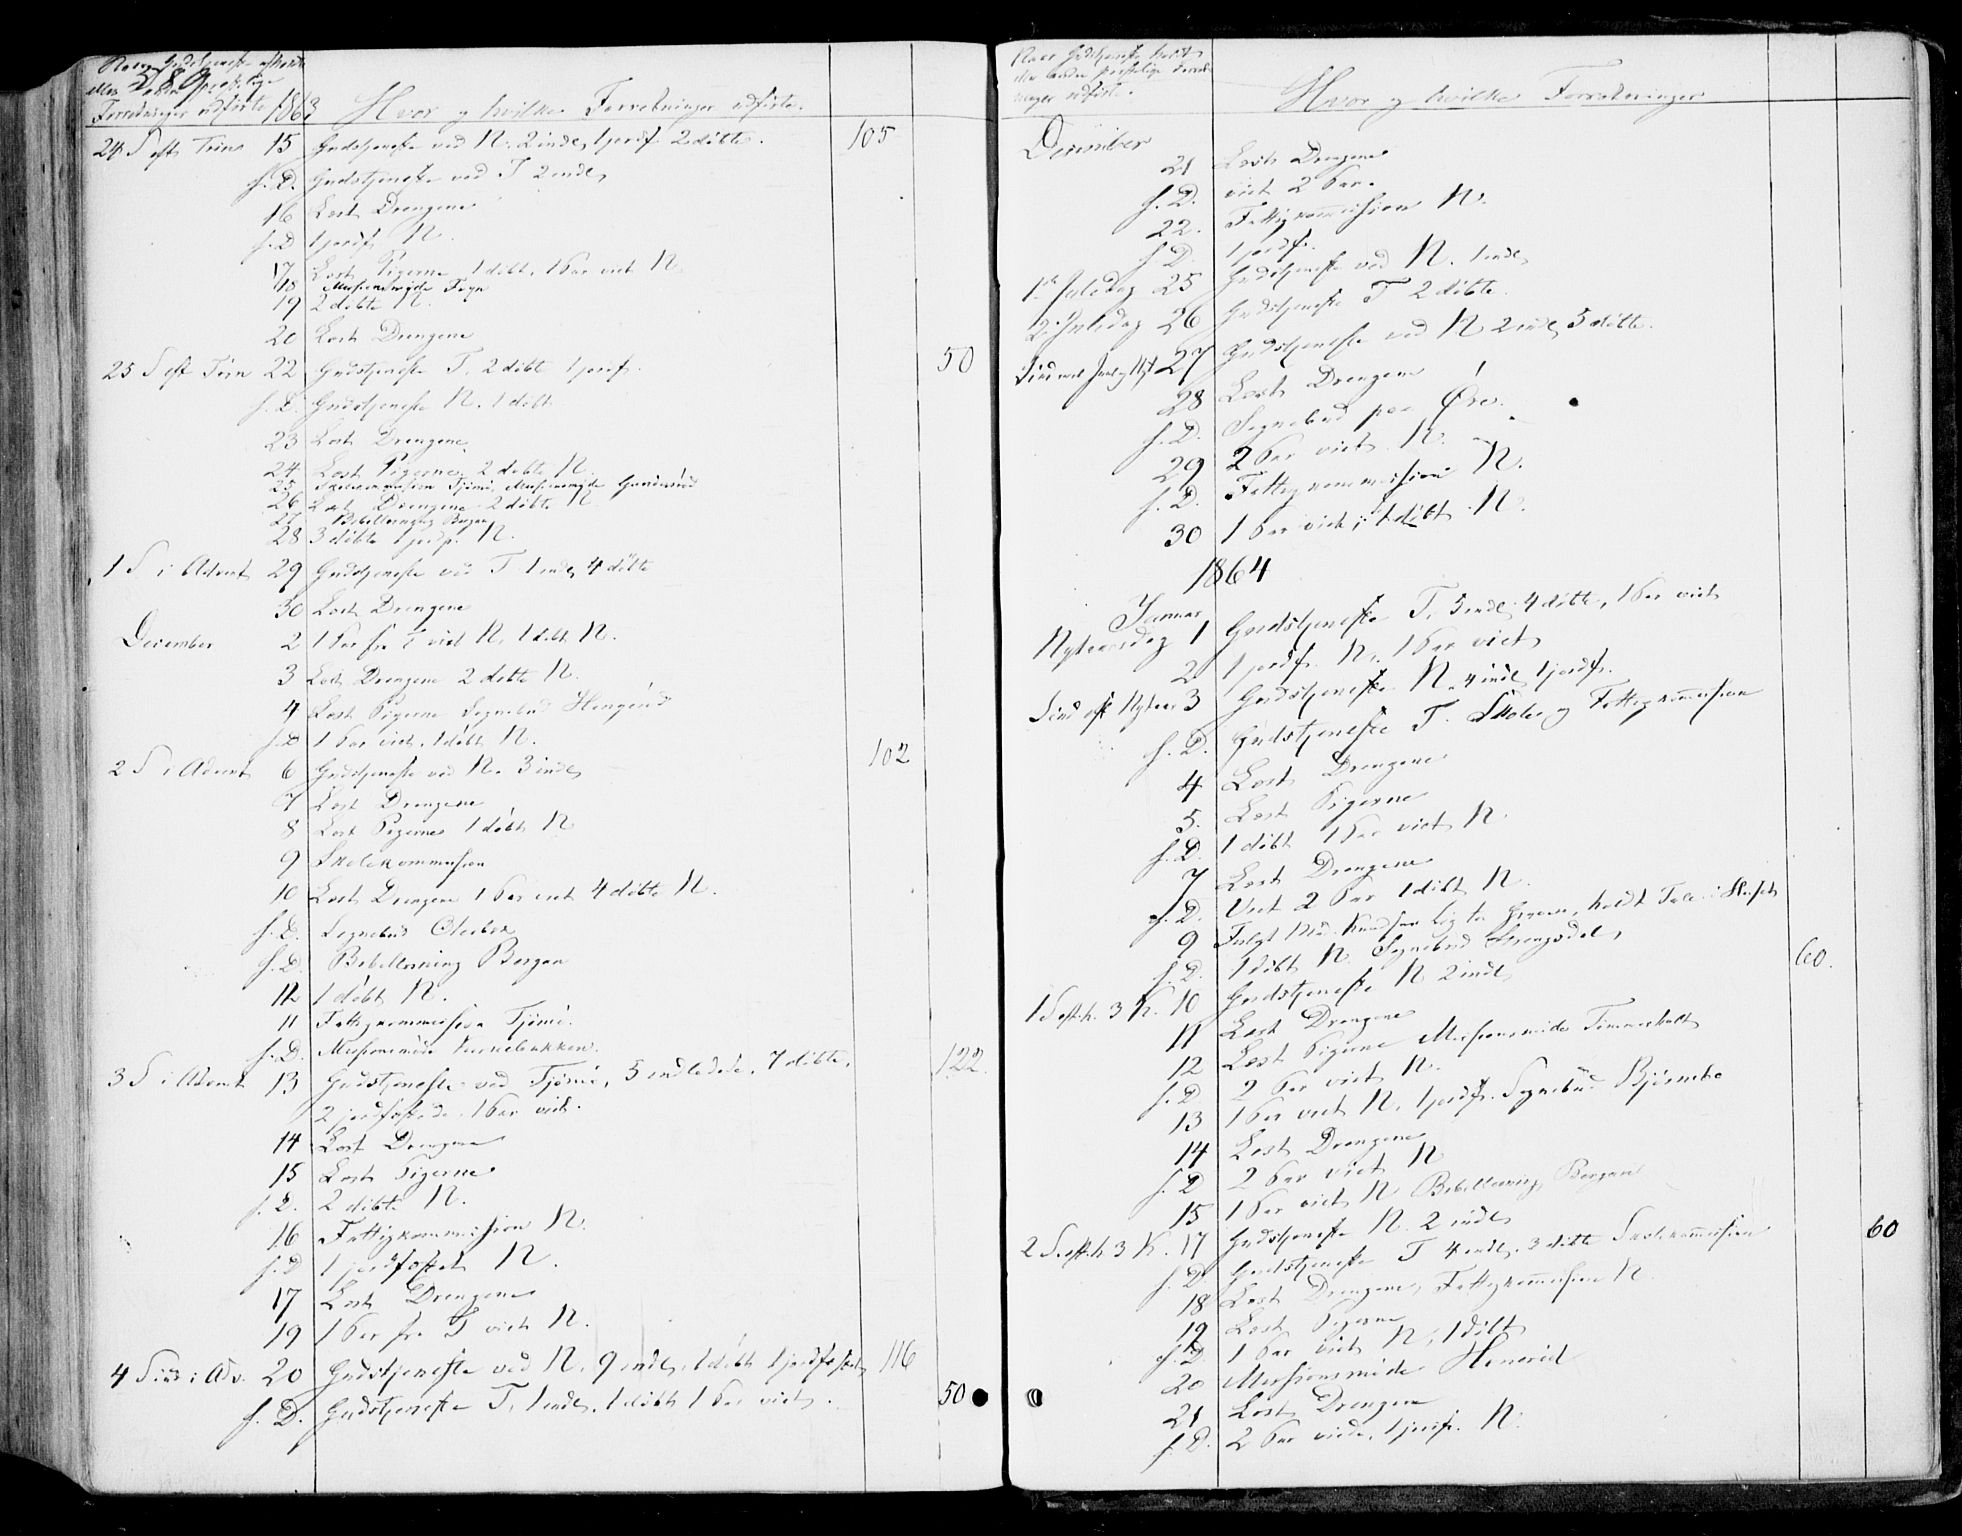 Naar Gudstjeneste afholdt
eller andre Præstelige
518
Forretninger udførte 1863 Hvor og hvilke Forretninger udførte.
24 S eft Trin 15 Gudstjeneste ved N. 2 indl, 1 jordf. 2 døbte. 105
s. D. Gudstjeneste ved T 2 indl,
16 Læst Drengene
s. D 1 jordf. N.
17 Læst Pigerne 1 døbt, 1 Par viet N
18 Missionsmøde
19 2 døbte N.
20 Læst Drengene
25 S eft Trin 22 Gudstjeneste T. 2 døbt 1 jordf. 50
s. D. Gudstjeneste N. 1 døbt
23 Læst Drengene
24 Læst Pigerne 2 døbte N.
25 Skolekommission Tjømø, Missionsmøde
26 Læst Drengene 2 døbte N
27 Bibellæsning Bergan
28 3 døbte 1 jordf. N.
1 S i Advent 29 Gudstjeneste ved T 1 indl, 4 døbte
30 Læst Drengene
December 2 1 Par fra T viet N. 1 døbt N.
3 Læst Drengene 2 døbte N.
4 Læst Pigerne Sognebud
s. D 1 Par viet, 1 døbt N.
2 S i Advent 6 Gudstjeneste ved N. 3 indl, 102
7 Læst Drengene
8 Læst Pigerne 1 døbt N
9 Skolekommission
10 Læst Drengene 1 Par viet 4 døbte N.
s. D. Sognebud
s. D. Bibellæsning Bergan
12 1 døbt N.
11 Fattigkommission Tjømø.
s. D. Missionsmøde
3 S i Advent 13 Gudstjeneste ved Tjømø, 5 indledede, 7 døbte, 122.
2 jordfæstede 1 Par viet.
14 Læst Drengene
15 Læst Pigerne
s. D. 2 døbte N.
16 Fattigkommission N.
s. D 1 jordfæstet N.
17 Læst Drengene
19 1 Par fra T viet N.
4 Sønd i Adv. 20 Gudstjeneste ved N. 9 indl, 1 døbt 1 jordfæstet, 116
s. D. Gudstjeneste T. 1 indl, 1 døbt 1 Par viet. 50
Naar Gudstjeneste holdt
eller andre præstelige Forret-
ninger udførte. Hvor og hvilke Forretninger
December
21 Læst Drengene
s. D. viet 2 Par.
22. Fattigkommission N.
s. D. 1 jordf.
1ste Juledag 25 Gudstjeneste ved N. 1 indl,
2. Juledag 26 Gudstjeneste T 2 døbte.
Sønd mel Jul og Nyt 27 Gudstjeneste ved N 2 indl, 5 døbte.
28 Læst Drengene
s. D. Sognebud paa Øre.
29 2 Par viet N.
s. D. Fattigkommission N.
30 1 Par viet, 1 døbt N.
1864
Januar
Nytaarsdag 1 Gudstjeneste T. 5 indl. 4 døbte, 1 Par viet
2 1 jordf. N. 1 Par viet
Sønd eft Nytaar 3 Gudstjeneste N. 4 indl, 1 jordf.
s. D. Gudstjeneste T. Skole og Fattigkommission
4 Læst Drengene
5. Læst Pigerne
s. D. 1 døbt 1 Par viet N.
7 Læst Drengene
s. D. Viet 2 Par 1 døbt N.
9 Fulgt Knudsens Lig til Graven, holdt Tale i Huset
s. D. 1 døbt N. Sognebud
1 S eft. h. 3 K. 10 Gudstjeneste N 2 indl, 60.
11 Læst Drengene
12 Læst Pigerne Missionsmøde Timmerholt
s. D 2 Par viet N.
13 1 Par viet N, 1 jordf. Sognebud Bjørnebo
14 Læst Drengene
s. D 2 Par viet N
15 1 Par viet N Bibellæsning Bergan
2 S. eft. h. 3 K. 17 Gudstjeneste N. 2 indl, 60
s. D Gudstjeneste T 4 indl. 3 døbte Skolekommission
18 Læst Drengene, Fattigkommission N.
19 Læst Pigerne
s. D 1 Par viet N, 1 døbt
20 Missionsmøde
21 Læst Drengene
s. D. 2 Par viede, 1 jordf. N.